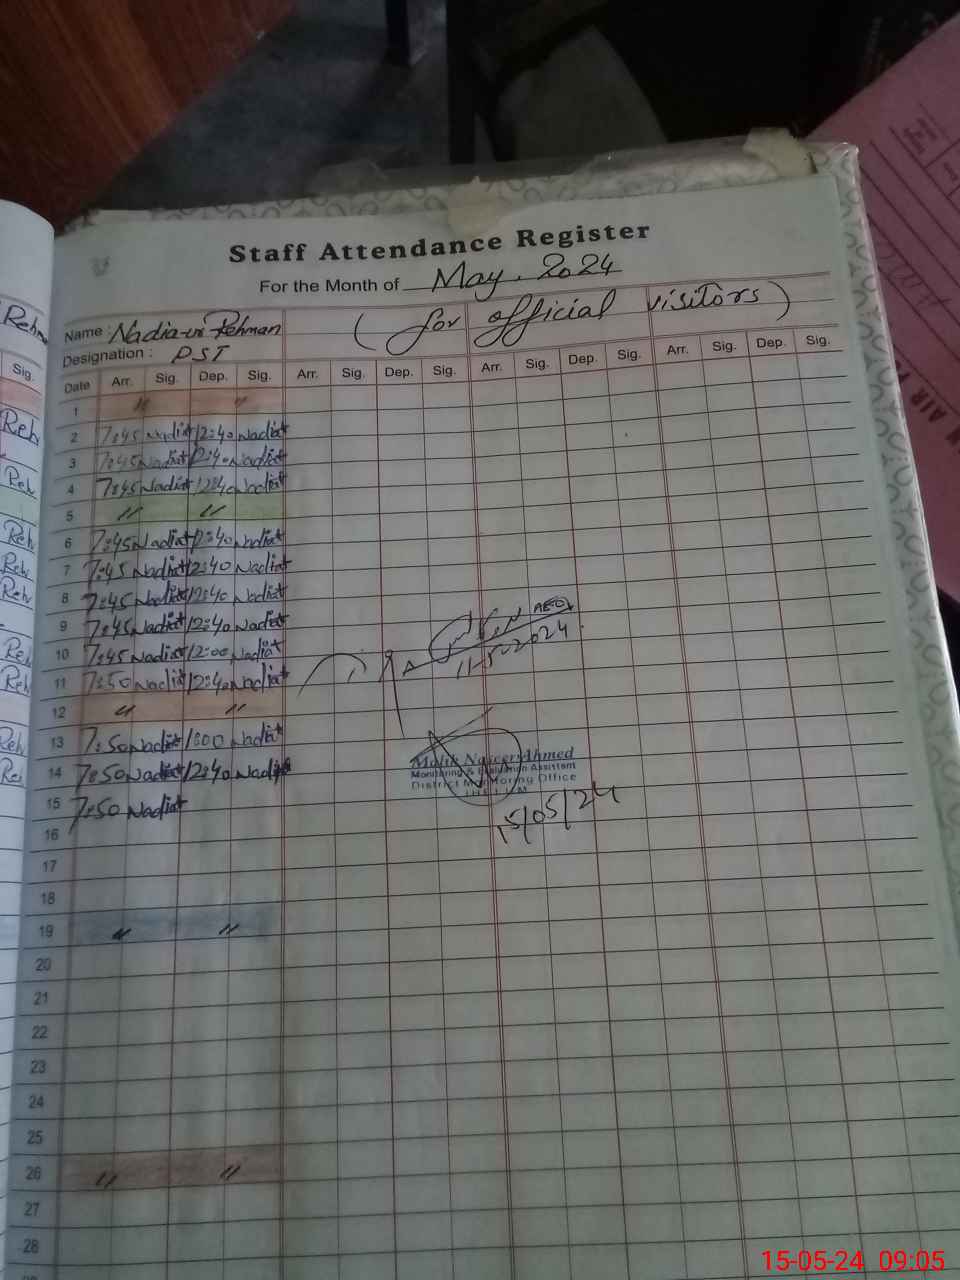 Staff Attendance Register
For the Month of May. 2024
Name : Nadia-ur-Rehman (for official visitors)
Designation : PST
Date Arr. Sig. Dep. Sig. Arr. Sig. Dep. Sig. Arr. Sig. Dep. Sig. Arr. Sig. Dep. Sig.
1 〃 〃
2 7:45 Nadia 12:40 Nadia
3 7:45 Nadia 12:40 Nadia
4 7:45 Nadia 12:40 Nadia
5 〃 〃
6 7:45 Nadia 12:40 Nadia
7 7:45 Nadia 12:40 Nadia
8 7:45 Nadia 12:40 Nadia
9 7:45 Nadia 12:40 Nadia
10 7:45 Nadia 12:00 Nadia
11 7:50 Nadia 12:40 Nadia
12 〃 〃
13 7:50 Nadia 1:00 Nadia
14 7:50 Nadia 12:40 Nadia
15 7:50 Nadia
16
17
18
19 〃 〃
20
21
22
23
24
25
26 〃 〃
27
28
AEO
11-5-2024
Malik Naseer Ahmed
Monitoring & Evaluation Assistant
District Monitoring Office
JHELUM
15/05/24
Sig.
Reh
Reh
Reh
Reh
Reh
Reh
Reh
Reh
15-05-24 09:05